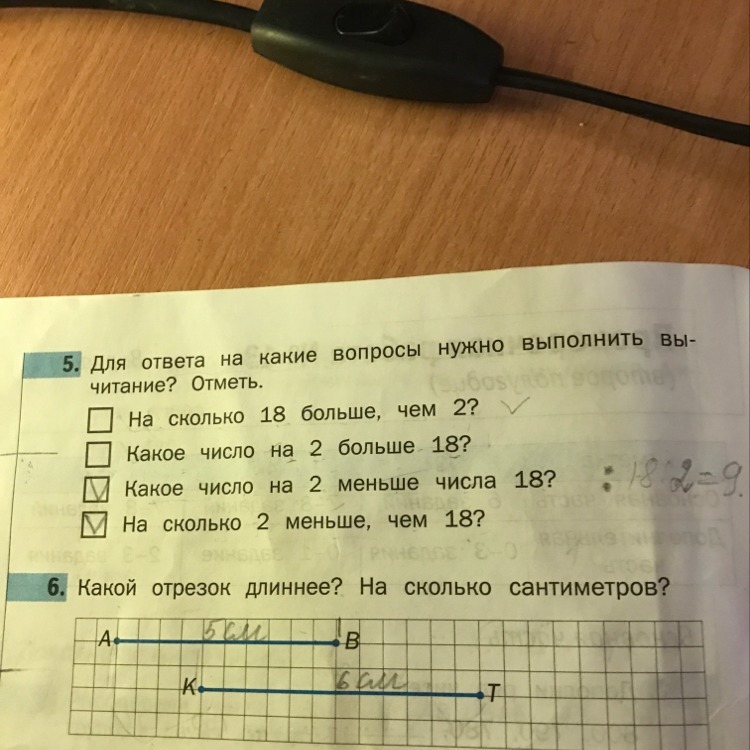 5. Для ответа на какие вопросы нужно выполнить вы-
читание? Отметь.
На сколько 18 больше, чем 2?
Какое число на 2 больше 18?
Какое число на 2 меньше числа 18? : 18 2=9.
На сколько 2 меньше, чем 18?
6. Какой отрезок длиннее? На сколько сантиметров?
А 5 см В
К 6 см Т